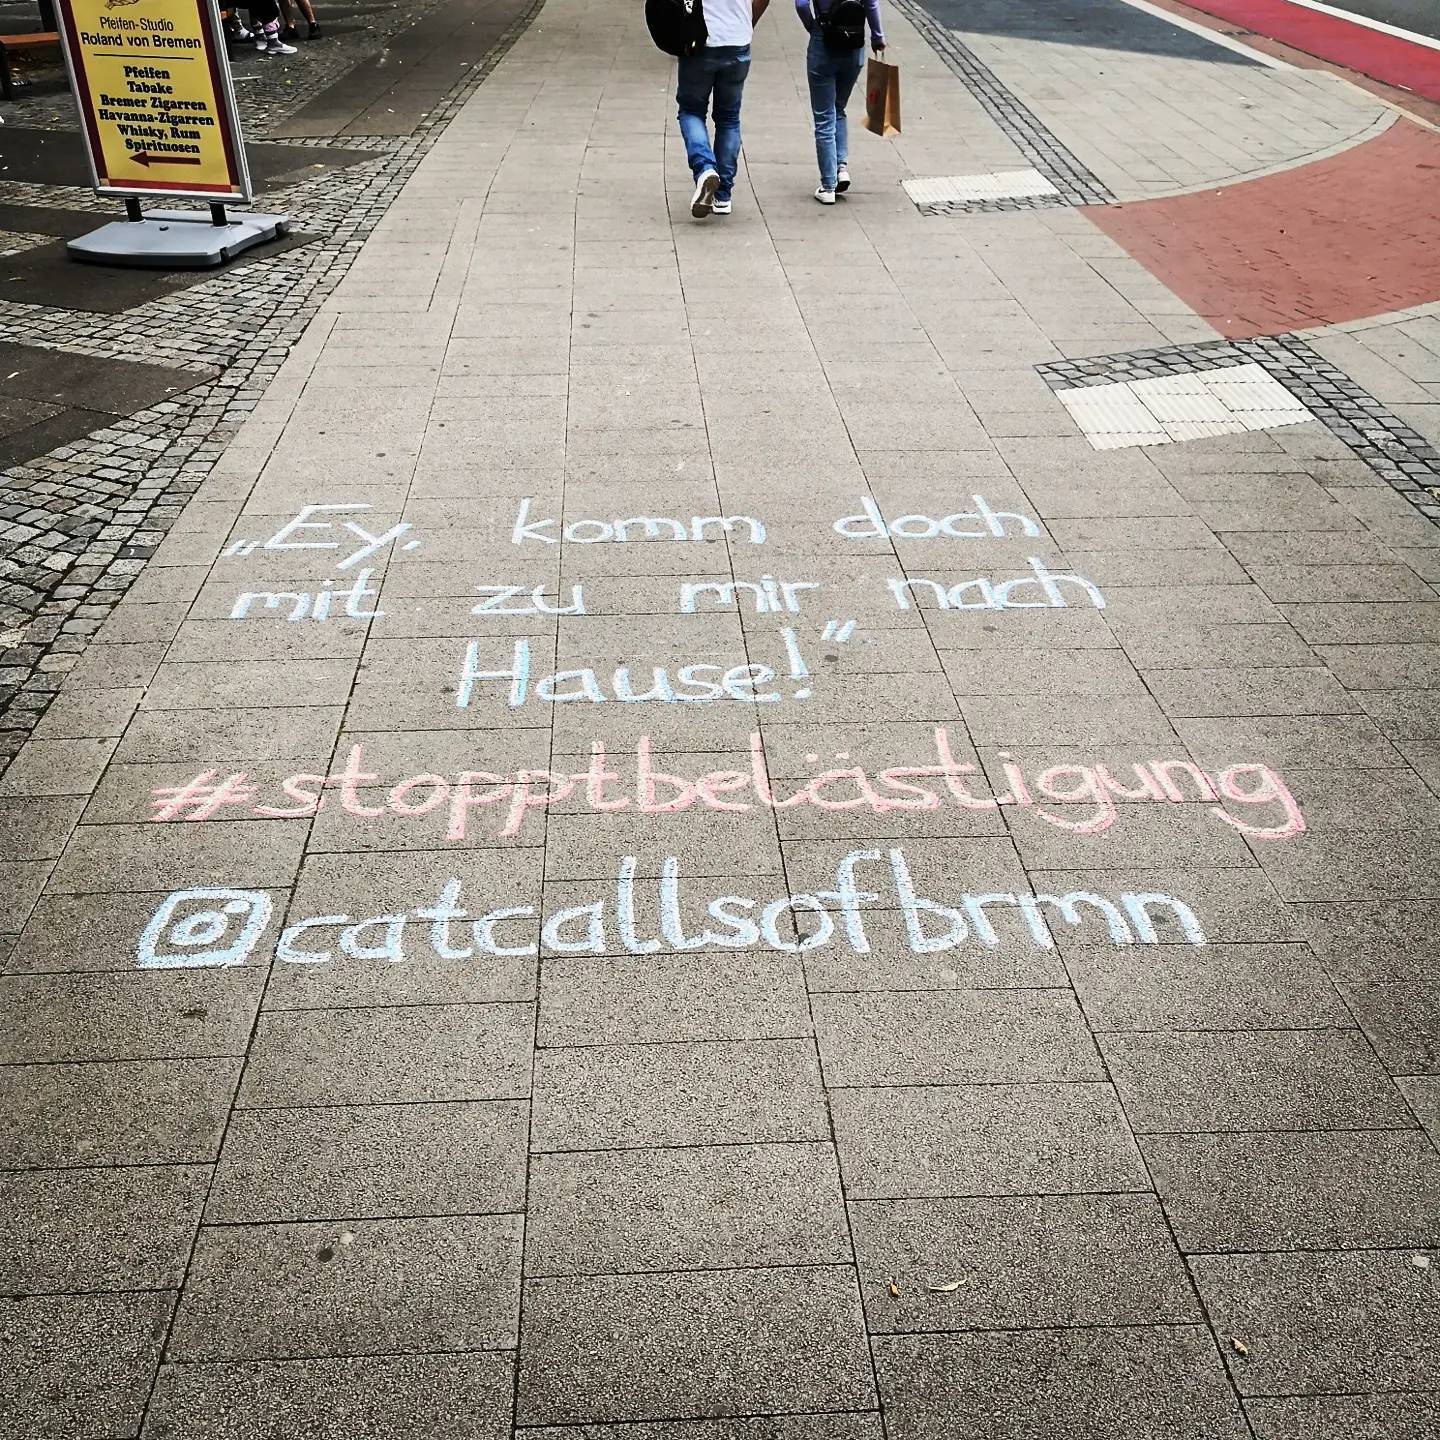 Pfeifen-Studio
Roland von Bremen
Pfeifen
Tabake
Bremer Zigarren
Havanna-Zigarren
Whisky, Rum
Spirituosen
„Ey, komm doch
mit zu mir nach
Hause!"
#stopptbelästigung
@catcallsofbrmn